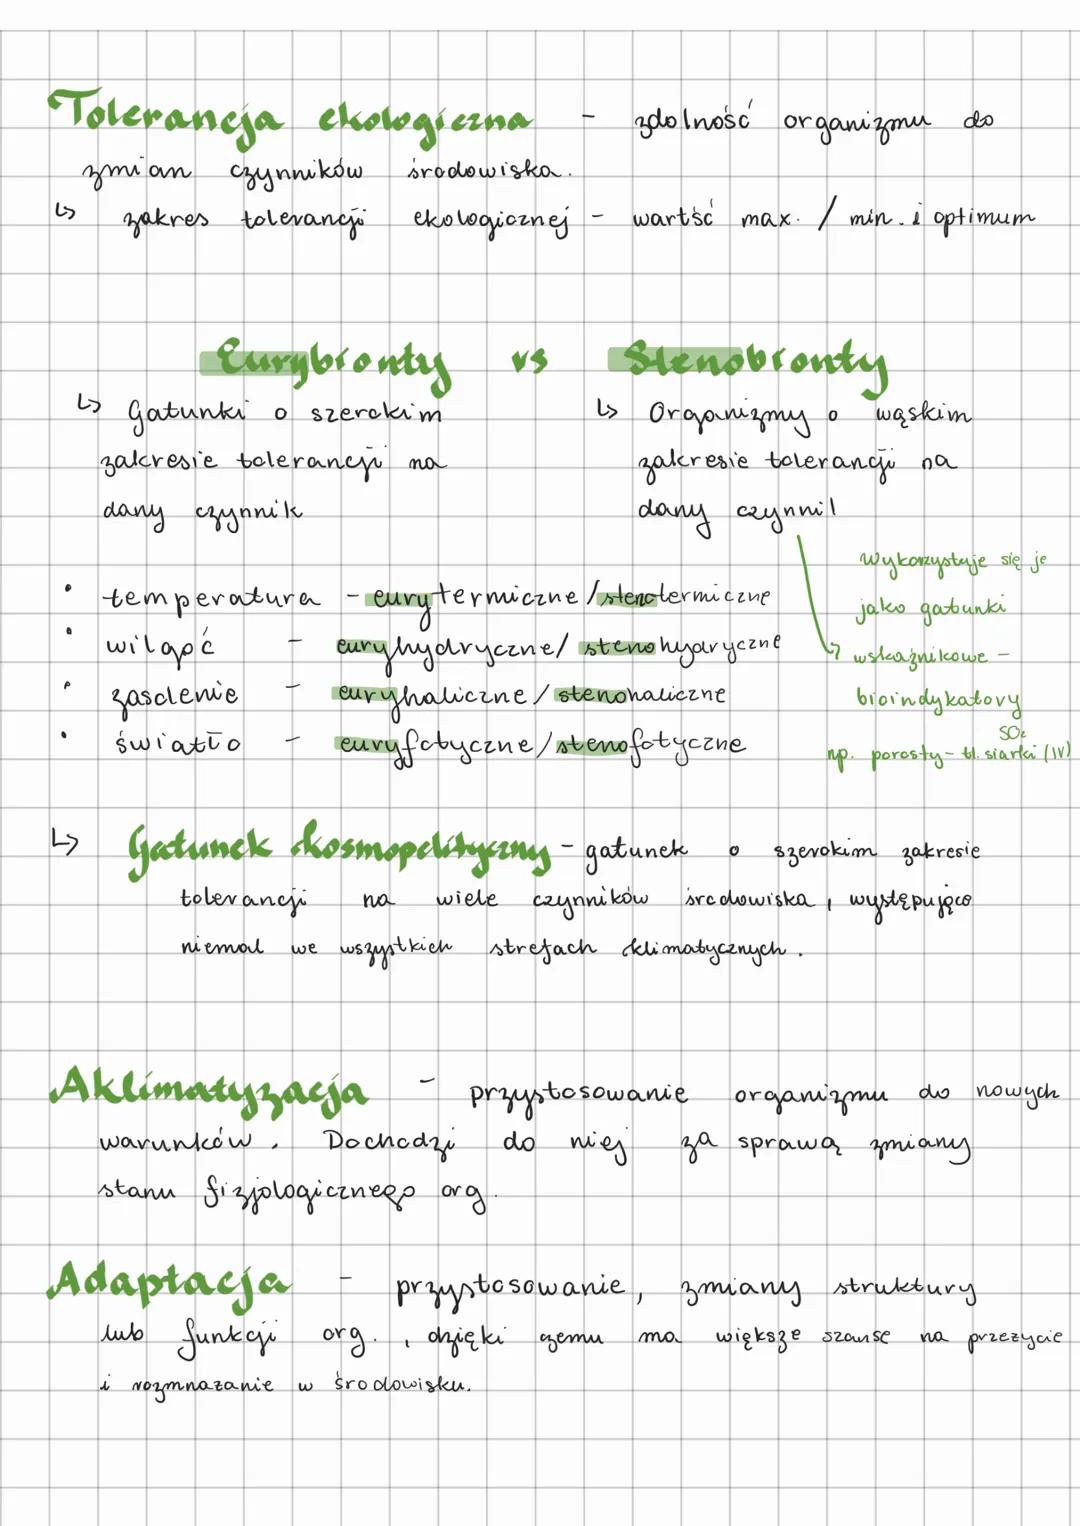 Tolerancja ekologiczna - zdolność organizmu do
zmian czynników środowiska.
↳ zakres tolerancji ekologicznej - wartść max. / min. i optimum
Eurybionty vs Stenobionty
↳ Gatunki o szerokim
zakresie tolerancji na
dany czynnik
↳ Organizmy o wąskim
zakresie tolerancji na
dany czynnil
• temperatura - eurytermiczne / stenotermiczne
• wilgoć - euryhydryczne / stenohydryczne
• zasolenie - euryhaliczne / stenohaliczne
• światło - euryfotyczne / stenofotyczne
Wykorzystuje się je
jako gatunki
wskaźnikowe -
bioindykatory
SO₂
np. porosty - tl. siarki (IV)
↳ Gatunek kosmopolityczny - gatunek o szerokim zakresie
tolerancji na wiele czynników środowiska, występujące
niemal we wszystkich strefach klimatycznych.
Aklimatyzacja - przystosowanie organizmu do nowych
warunków. Dochodzi do niej za sprawą zmiany
stanu fizjologicznego org.
Adaptacja - przystosowanie, zmiany struktury
lub funkcji org., dzięki czemu ma większe szanse na przeżycie
i rozmnażanie w środowisku.